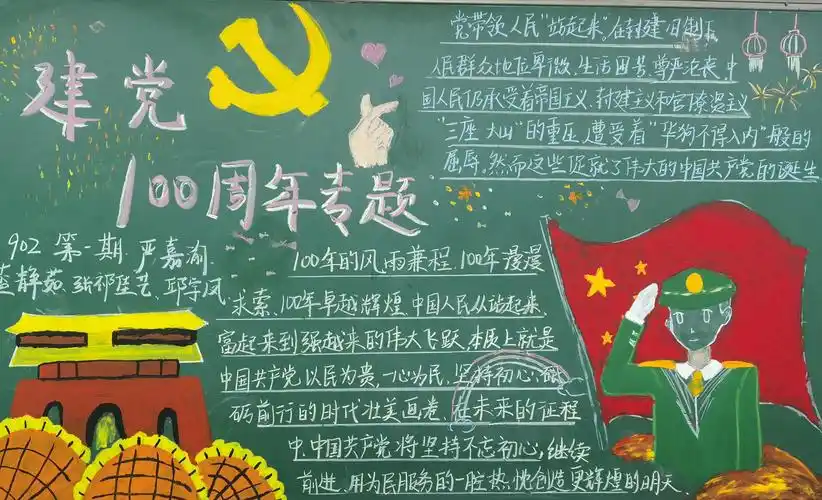 建党
100周年专题
党带领人民"站起来"。在封建旧制下
人民群众地位卑微、生活困苦、尊严沦丧、中
国人民仍承受着帝国主义、封建主义和官僚资主义
"三座大山"的重压,遭受着"华狗不得入内"般的
屈辱。然而这些促就了伟大的中国共产党的诞生
902 第一期 严嘉渝
静茹、张祁 艺、邱宇凤
100年的风雨兼程、100年漫漫
求索、100年卓越辉煌,中国人民从站起来、
富起来到强越来的伟大飞跃,本质上就是
中国共产党以民为贵,一心为民,坚持初心,砥
砺前行的时代壮美画卷。在未来的征程
中,中国共产党将坚持不忘初心,继续
前进、用为民服务的一腔热忱创造更辉煌的明天、